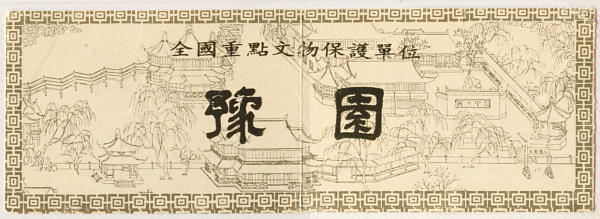 全國重點文物保護單位
豫園